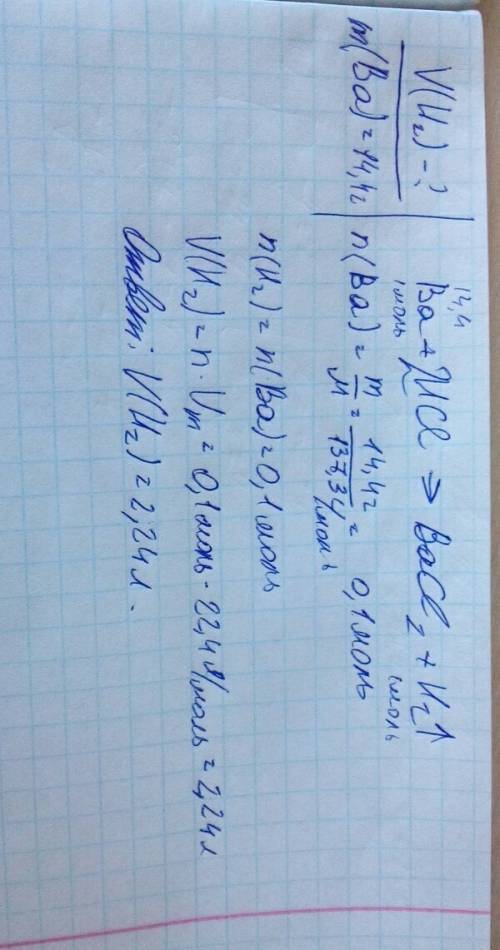 V(H₂) - ?
m(Ba) = 14,4г
14,4
Ba + 2HCl → BaCl₂ + H₂↑
1моль
1моль
n(Ba) = m/M = 14,4г/137,3г/моль = 0,1моль
n(H₂) = n(Ba) = 0,1моль
V(H₂) = n · Vm = 0,1моль · 22,4л/моль = 2,24л
Ответ: V(H₂) = 2,24л.